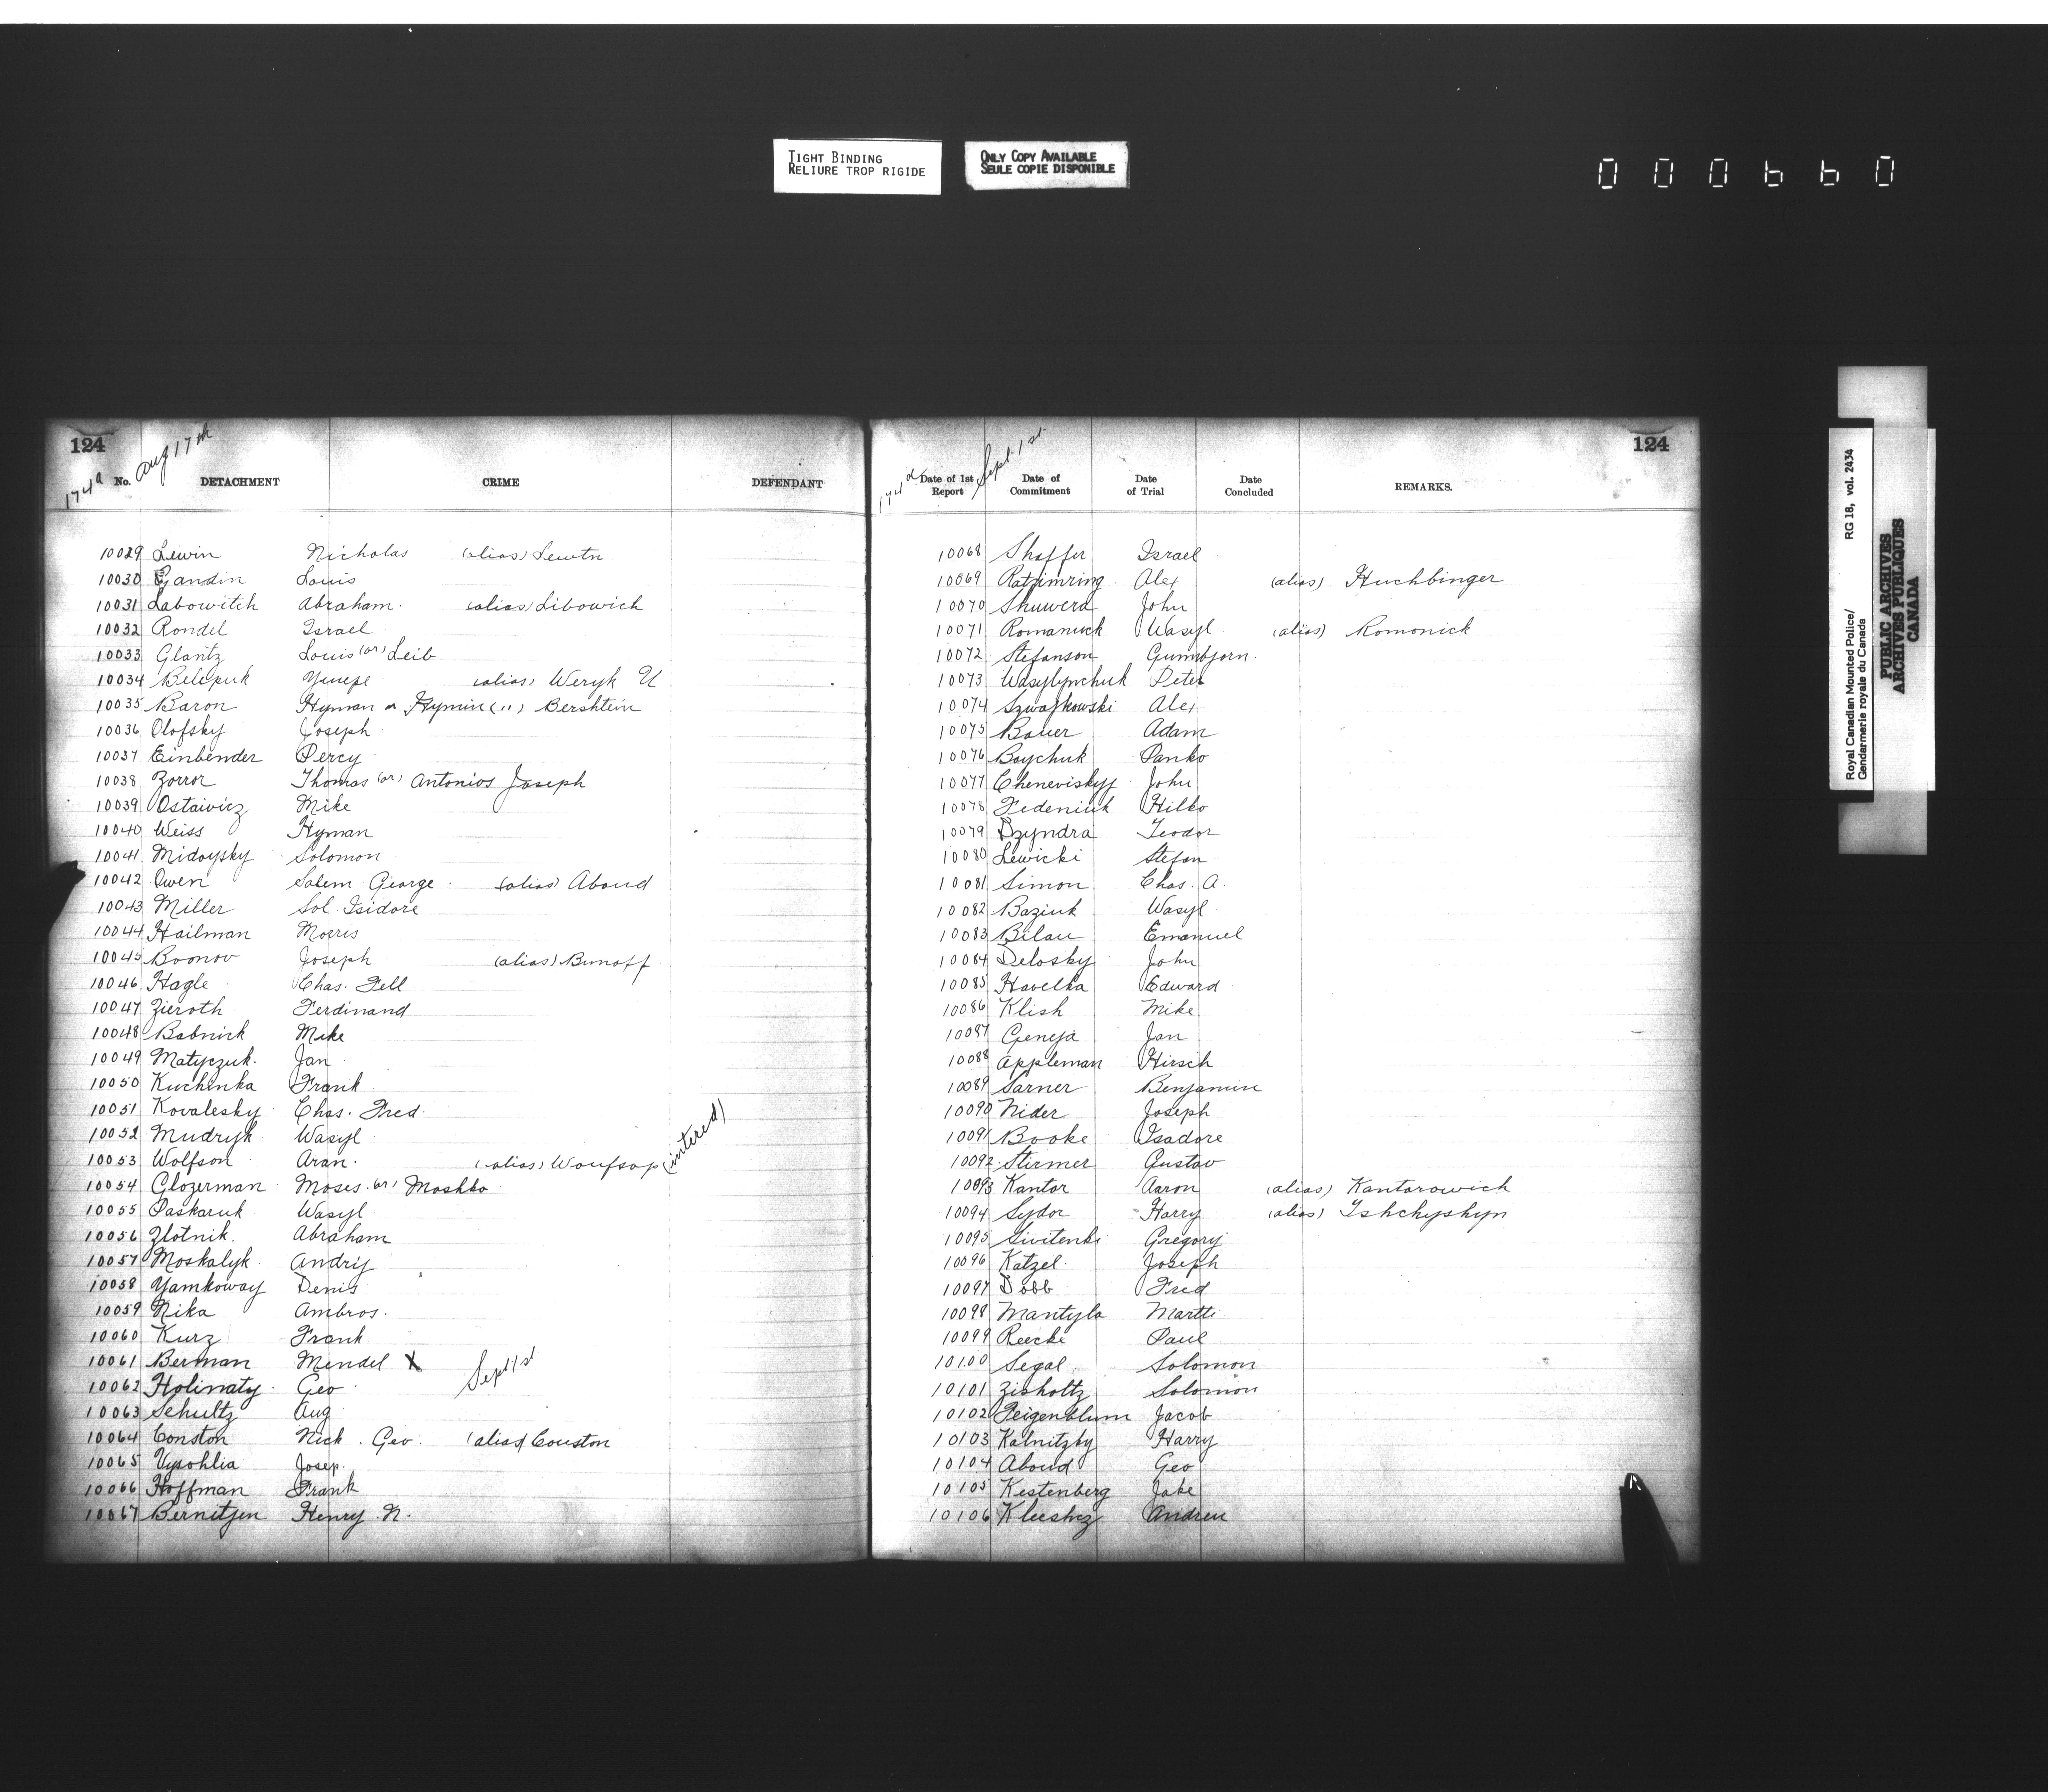 TIGHT BINDING
RELIURE TROP RIGIDE
ONLY COPY AVAILABLE
SEULE COPIE DISPONIBLE
000660
124
174a
Aug 17th
No. DETACHMENT CRIME DEFENDANT
10029 Lewin Nicholas (alias) Lewtn
10030 Gandin Louis
10031 Labowitch Abraham. (alias) Libowich
10032 Rondel Israel
10033 Glantz Louis (or) Leib
10034 Belepuk (alias) Weryk U
10035 Baron Hyman or Hymin (") Bershtein
10036 Olofsky Joseph
10037 Einbender Percy
10038 Zorror Thomas (or) Antonios Joseph
10039 Ostaivicz Mike
10040 Weiss Hyman
10041 Midoysky Solomon
10042 Owen Salem George (alias) Aboud
10043 Miller Sol Isidore
10044 Hailman Morris
10045 Boonov Joseph (alias) Bunoff
10046 Hagle Chas. Fell
10047 Zieroth Ferdinand
10048 Babnick Mike
10049 Matyczuk. Jan
10050 Kuchinka Frank
10051 Kovalesky Chas. Fred.
10052 Mudryk Wasyl
10053 Wolfson Aran. (alias) Woufsop (intered)
10054 Glozerman Moses (or) Moshko
10055 Paskaruk Wasyl
10056 Zlotnik. Abraham
10057 Moskalyk Andrij
10058 Yamkoway Denis
10059 Nika Ambros.
10060 Kurz Frank
10061 Berman Mendel X
Sept 1st
10062 Holinaty Geo
10063 Schultz Aug
10064 Conston Nick. Geo. (alias) Couston
10065 Vysohlia Josep.
10066 Hoffman Frank
10067 Bernitzen Henry N.
124
174d
Sept. 1st.
Date of 1st Report Date of Commitment Date of Trial Date Concluded REMARKS.
10068 Shaffer Israel
10069 Ratzimring Alex (alias) Huchbinger
10070 Shuwera John
10071 Romanuck Wasyl (alias) Romonick
10072 Stefanson Gunnbjorn.
10073 Wasylynchuk Peter
10074 Szwajkowski Alex
10075 Bauer Adam
10076 Boychuk Panko
10077 Cheneviskyj John
10078 Fedeniuk Hilko
10079 Dzyndra Teodor
10080 Lewicki Stefan
10081 Simon Chas. A.
10082 Baziuk Wasyl
10083 Bilau Emanuel
10084 Delosky John
10085 Havelka Edward
10086 Klish Mike
10087 Geneja Jan
10088 Appleman Hirsch
10089 Sarner Benjamin
10090 Nider Joseph
10091 Booke Isadore
10092 Stirmer Gustav
10093 Kantor Aaron (alias) Kantorowich
10094 Sydor Harry (alias) Ishchyshyn
10095 Sivitenki Gregory
10096 Katzel. Joseph
10097 Dobb Fred
10098 Mantyla Martti
10099 Reecke Paul
10100 Segal Solomon
10101 Zisholtz Solomon
10102 Feigenblum Jacob
10103 Kalnitzky Harry
10104 Aboud Geo
10105 Kestenberg Jake
10106 Andrew
Royal Canadian Mounted Police/
Gendarmerie royale du Canada
RG 18, vol. 2434
PUBLIC ARCHIVES
ARCHIVES PUBLIQUES
CANADA